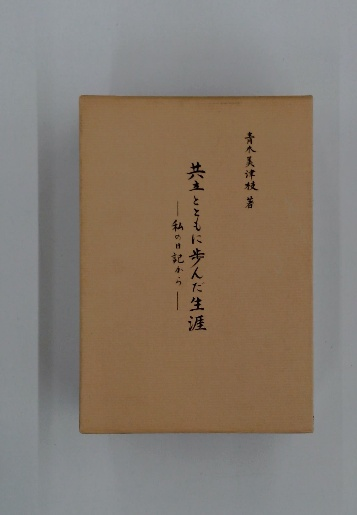 青木美津枝 著
共立とともに歩んだ生涯
―私の日記から―